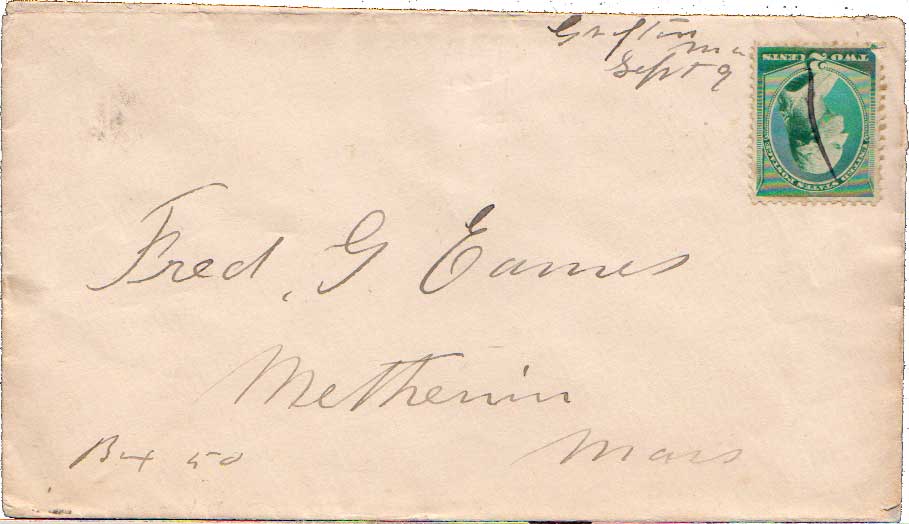 Grafton
Me
Sept 9
TWO 2 CENTS
UNITED STATES POSTAGE
Fred. G. Eames
Methenin
Mass
Box 50